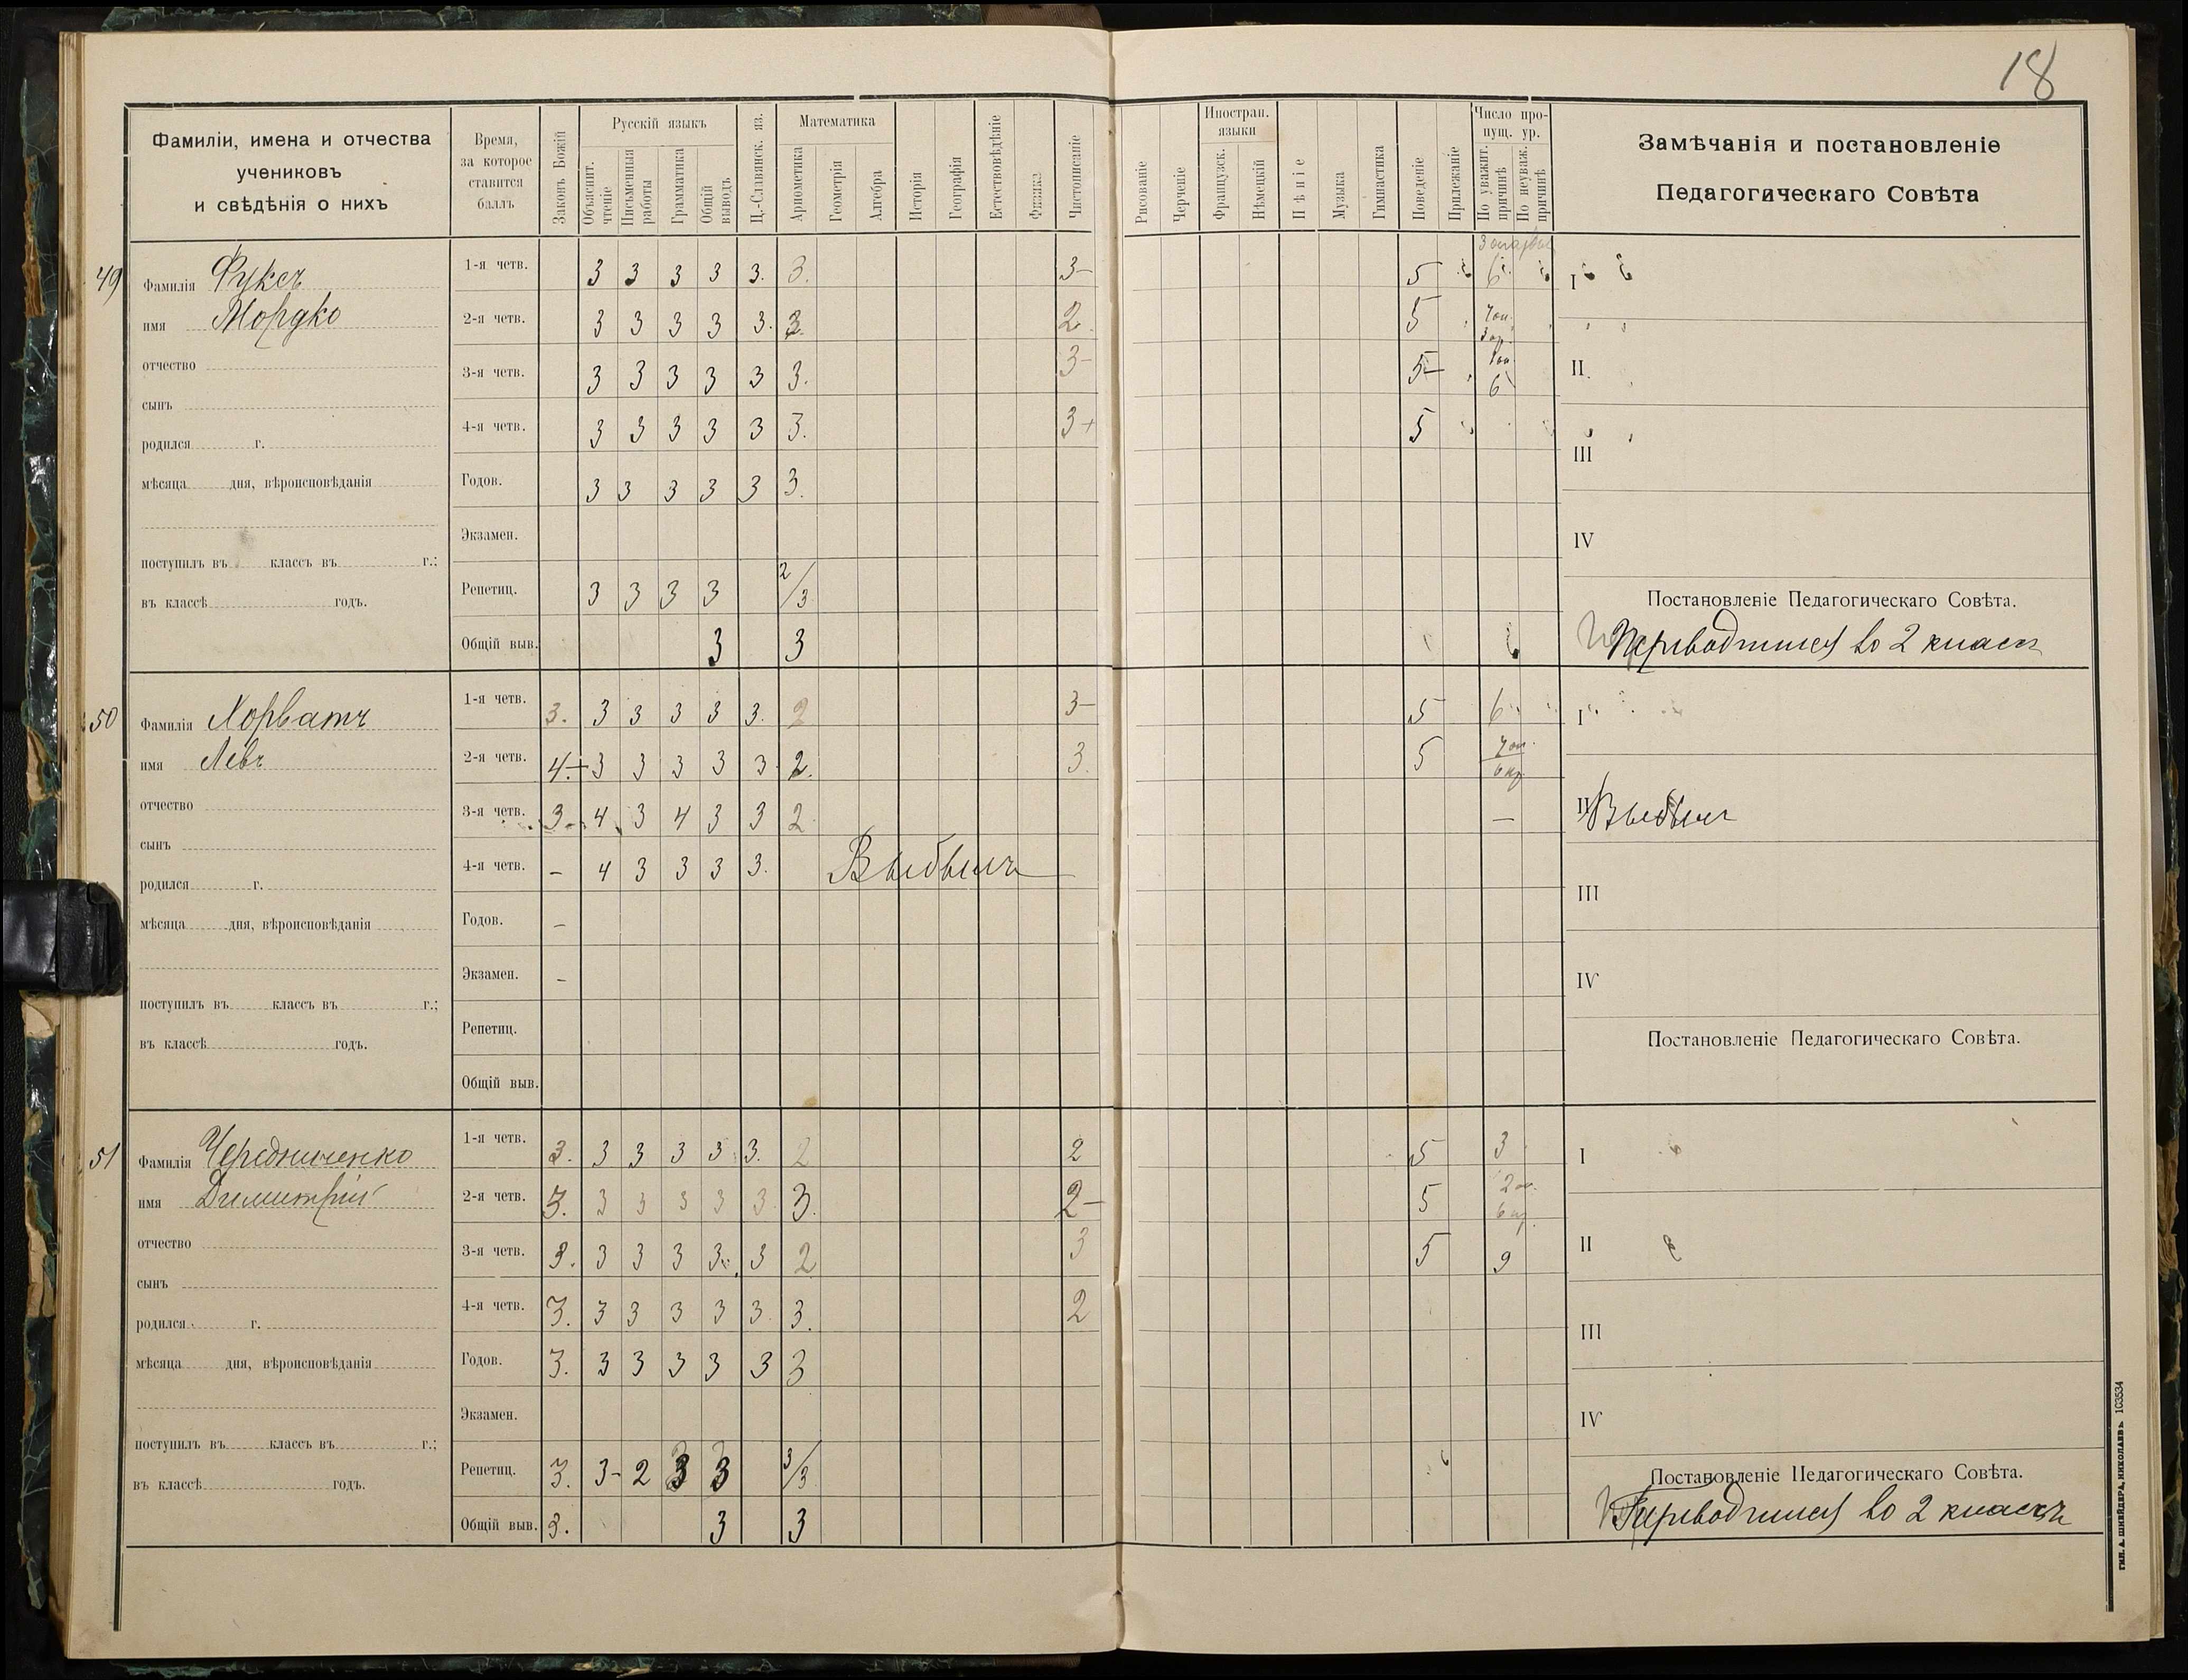 18
Фамиліи, имена и отчества
учениковъ
и свѣдѣнія о нихъ
Время,
за которое
ставится
баллъ
Законъ Божій
Русскій языкъ
Объяснит. чтеніе
Письменныя работы
Грамматика
Общій выводъ
Ц.-Славянск. яз.
Математика
Ариѳметика
Геометрія
Алгебра
Исторія
Географія
Естествовѣдѣніе
Физика
Чистописаніе
Рисованіе
Черченіе
Иностран. языки
Французск.
Нѣмецкій
Пѣніе
Музыка
Гимнастика
Поведеніе
Прилежаніе
Число пропущ. ур.
По уважит. причинѣ
По неуваж. причинѣ
Замѣчанія и постановленіе
Педагогическаго Совѣта
49
Фамилія Фуксъ
имя Мордко
отчество
сынъ
родился г.
мѣсяца дня, вѣроисповѣданія
поступилъ въ классъ въ г.;
въ классѣ годъ.
1-я четв. 3 3 3 3 3. 3. 3- 5 6
2-я четв. 3 3 3 3 3. 3. 2. 5
3-я четв. 3 3 3 3 3 3. 3- 5- 6
4-я четв. 3 3 3 3 3 3. 3+ 5
Годов. 3 3 3 3 3 3.
Экзамен.
Репетиц. 3 3 3 3 2/3
Общій выв. 3 3
I
II.
III
IV
Постановленіе Педагогическаго Совѣта.
Переводится во 2 классъ
50
Фамилія Хорватъ
имя Левъ
отчество
сынъ
родился г.
мѣсяца дня, вѣроисповѣданія
поступилъ въ классъ въ г.;
въ классѣ годъ.
1-я четв. 3. 3 3 3 3 3. 2 3- 5 6
2-я четв. 4.+ 3 3 3 3 3 2. 3. 5 7 оп. 6 ур.
3-я четв. 3- 4 3 4 3 3 2 —
4-я четв. - 4 3 3 3 3. Выбылъ
Годов. -
Экзамен. -
Репетиц.
Общій выв.
I
II Выбылъ
III
IV
Постановленіе Педагогическаго Совѣта.
51
Фамилія Чередниченко
имя Димитрій
отчество
сынъ
родился г.
мѣсяца дня, вѣроисповѣданія
поступилъ въ классъ въ г.;
въ классѣ годъ.
1-я четв. 3. 3 3 3 3 3. 2 2 5 3
2-я четв. 3. 3 3 3 3 3. 3. 2- 5 2 оп. 6 ур.
3-я четв. 3. 3 3 3 3. 3 2 3 5 9
4-я четв. 3. 3 3 3 3 3. 3. 2
Годов. 3. 3 3 3 3 3 3
Экзамен.
Репетиц. 3. 3- 2 3 3 3/3
Общій выв. 3. 3 3
I
II
III
IV
Постановленіе Педагогическаго Совѣта.
Переводится во 2 классъ
ТИП. А. ШНЕЙДЕРА, НИКОЛАЕВЪ 103534